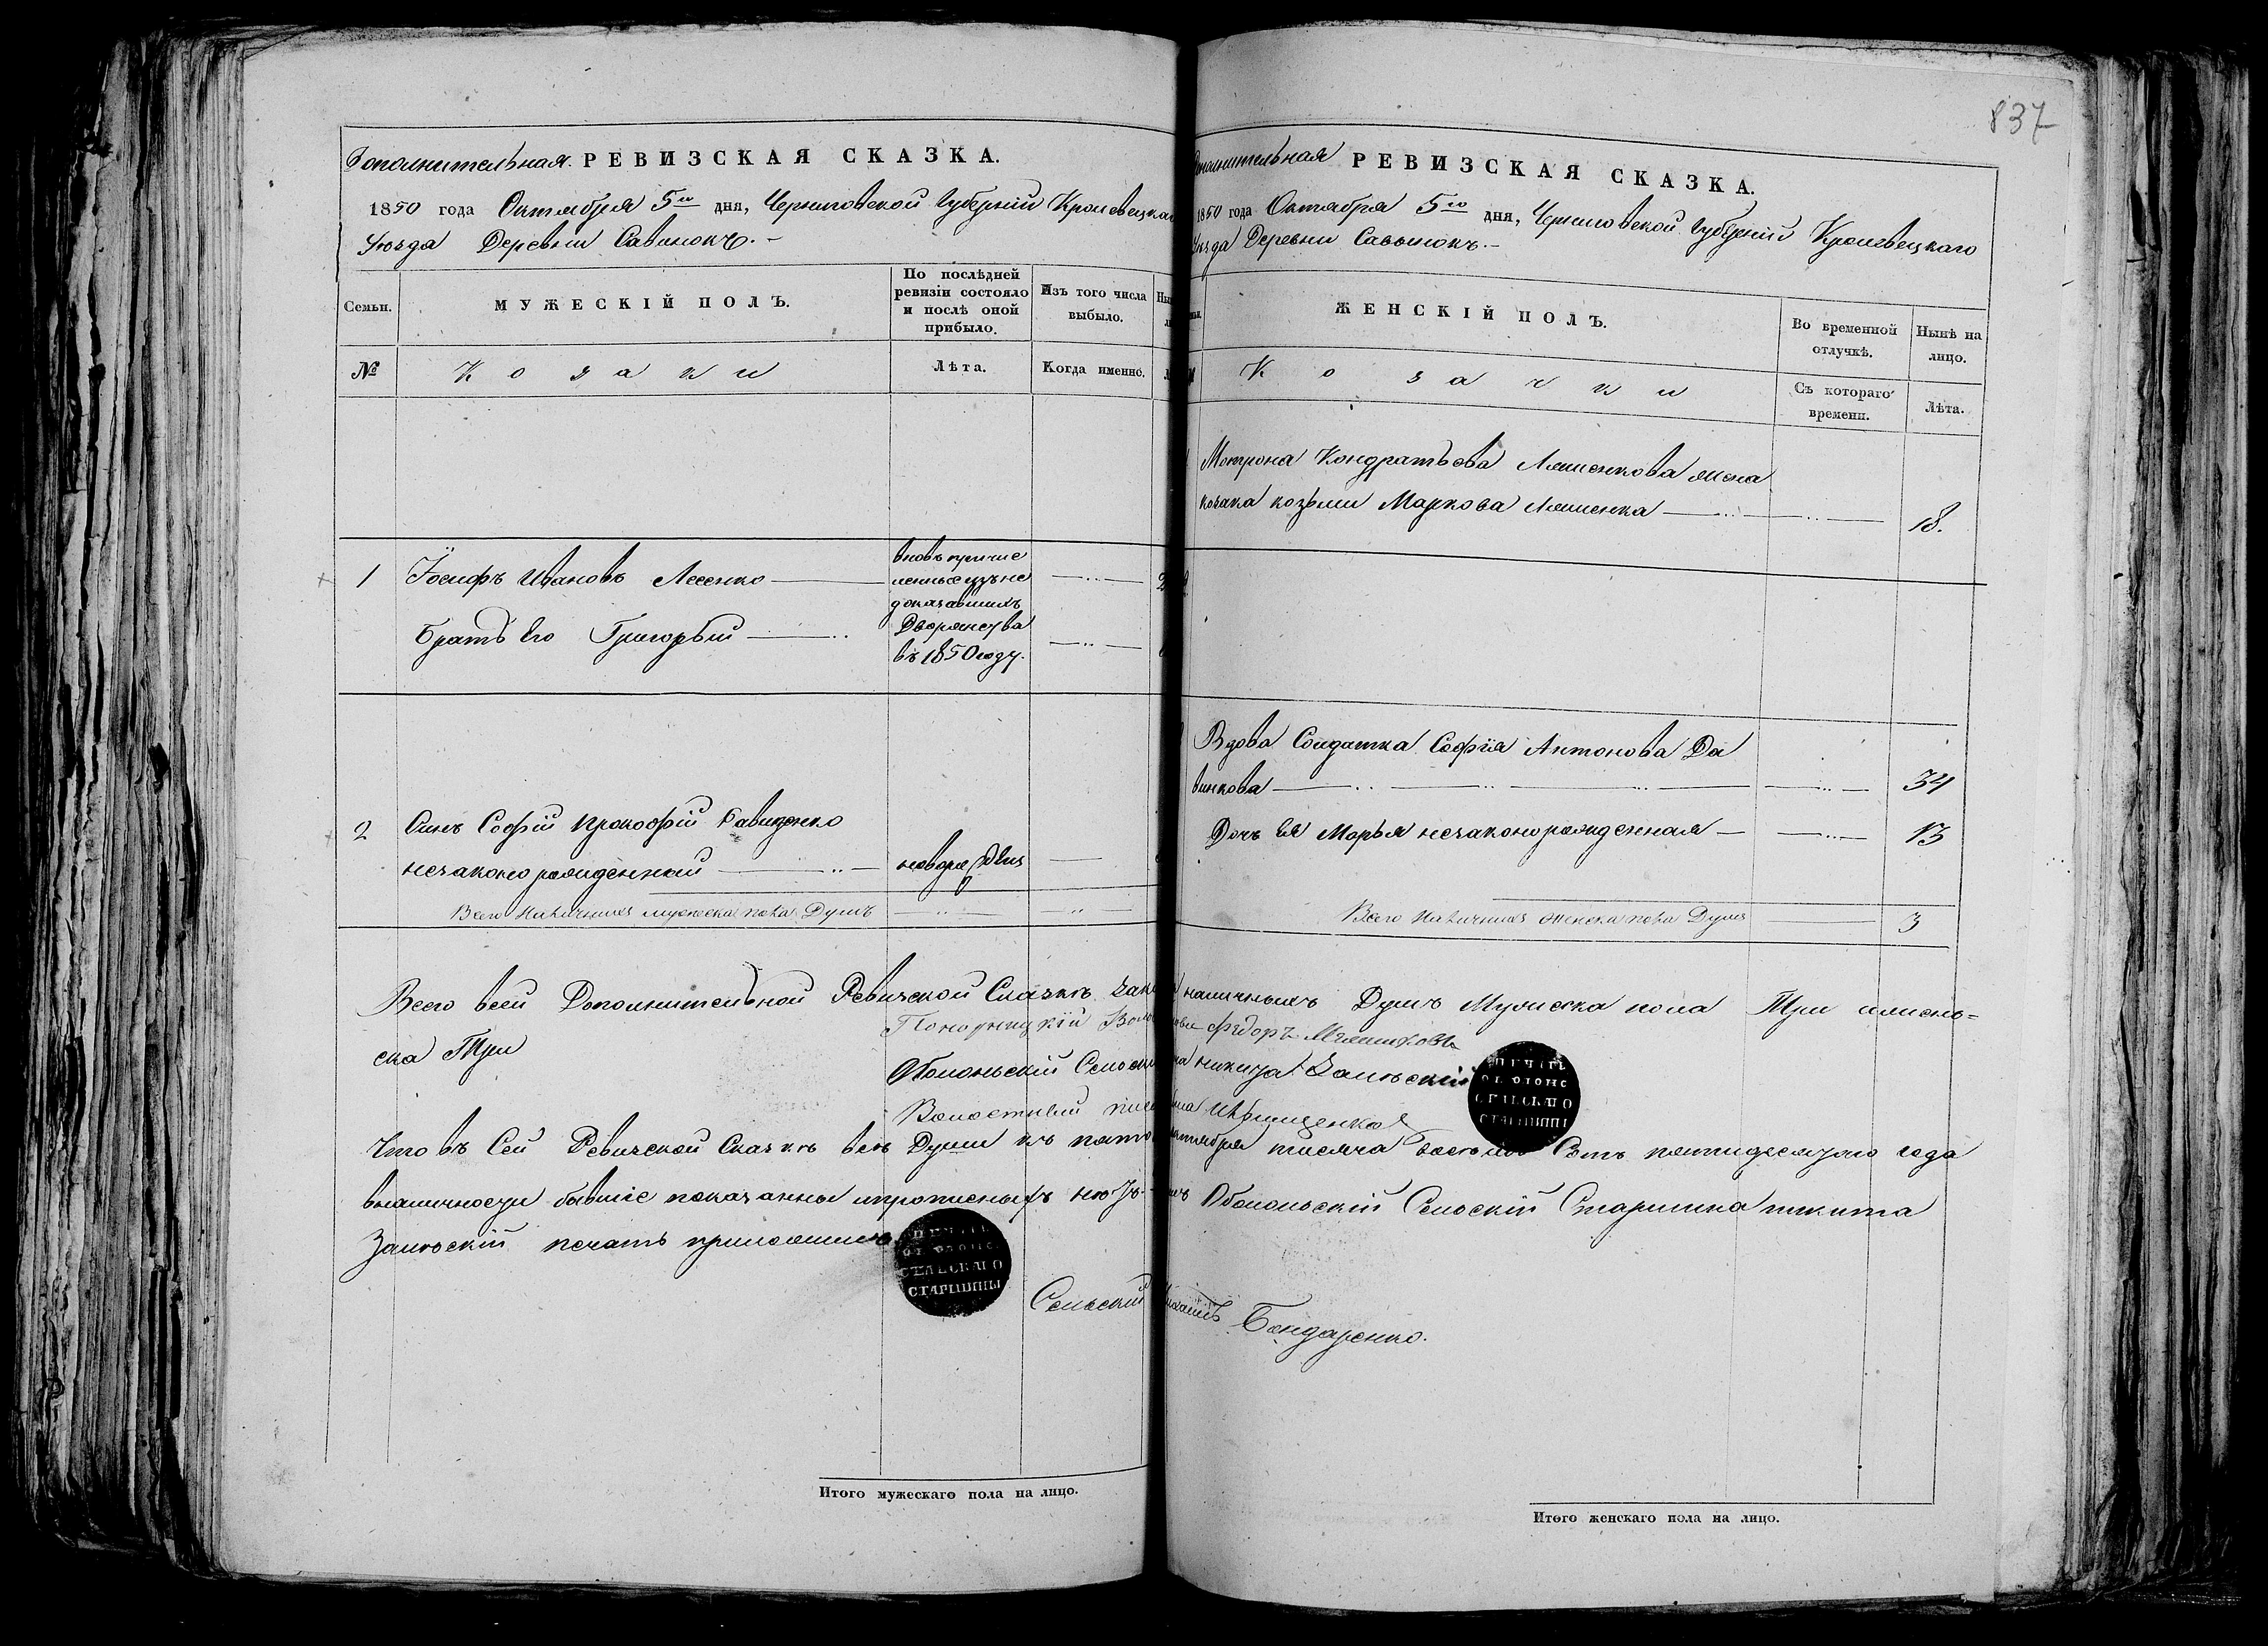 837
Дополнительная РЕВИЗСКАЯ СКАЗКА.
1850 года Октября 5го дня, Черниговской Губернии Кролевецкаго
Уезда Деревни Савинокъ.
Семьи.
МУЖЕСКІЙ ПОЛЪ.
По послѣдней
ревизіи состояло
и послѣ оной
прибыло.
Изъ того числа
выбыло.
№
Козаки
Лѣта.
Когда именно.
1 Іосифъ Ивановъ Лесенко
Братъ Его Григорьий
вновь причис
ленные изъ не
доказавшихъ
Дворянства
въ 1850 году.
2 Синъ Софіи Прокофій Давиденко
незаконорожденный
Всего наличныхъ мужеска пола Душъ
Дополнительная РЕВИЗСКАЯ СКАЗКА.
1850 года Октября 5го дня, Черниговской Губерніи Кролевецкаго
Уезда Деревни Савинокъ.
ЖЕНСКІЙ ПОЛЪ.
Во временной
отлучкѣ.
Нынѣ на
лицо.
Козачки
Съ котораго
времени.
Лѣта.
Мотрона Кондратьева Ляшенкова жена
козака козьми Маркова Ляшенка 18.
Вдова Солдатка Софія Антонова Да
винкова 34
Дочь Ея Марья незаконорожденная 13
Всего наличныхъ женска пола Душъ 3
Всего всей Дополнительной Ревизской Сказкѣ наличныхъ Душъ Мужеска пола Три ижень=
ска Три
Понорницкій Федоръ
Оболоньскій никита Залѣскій
ПЕЧАТЬ
ОБОЛОНС
СЕЛЬСКАГО
СТАРШИНЫ
Волостный Иващенко
Что въ Сей Ревизской Сказкѣ всѣ Души къ октября тисяча восемь Сотъ пятидесятого года
вналичности бывшіе показанны ипрописныхъ нетъ Оболоньский Сельскій Старшина никита
Залѣскій печать приложилъ
ПЕЧАТЬ
ОБОЛОНС
СЕЛЬСКАГО
СТАРШИНЫ
Сельскій Бондаренко.
Итого мужескаго пола на лицо.
Итого женскаго пола на лицо.